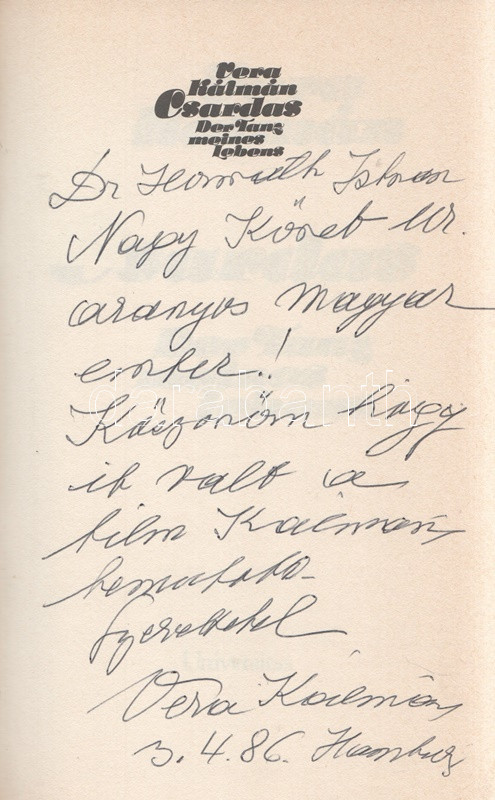 Vera
Kálmán
Csardas
Der Tanz
meines
Lebens
Dr Horváth Istvan
Nagy Követ Ur.
aranyos magyar
ember.!
Köszönöm hogy
it valt a
film Kálmán
bemutato-
Szeretettel
Vera Kálmán
3.4.86. Hamburg
darabanth